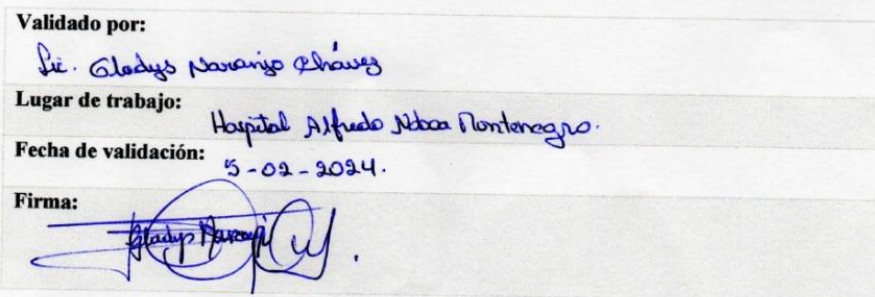 Validado por:
Lic. Gladys Naranjo Chávez
Lugar de trabajo:
Hospital Alfredo Noboa Montenegro.
Fecha de validación:
5-02-2024.
Firma:
Gladys Naranjo